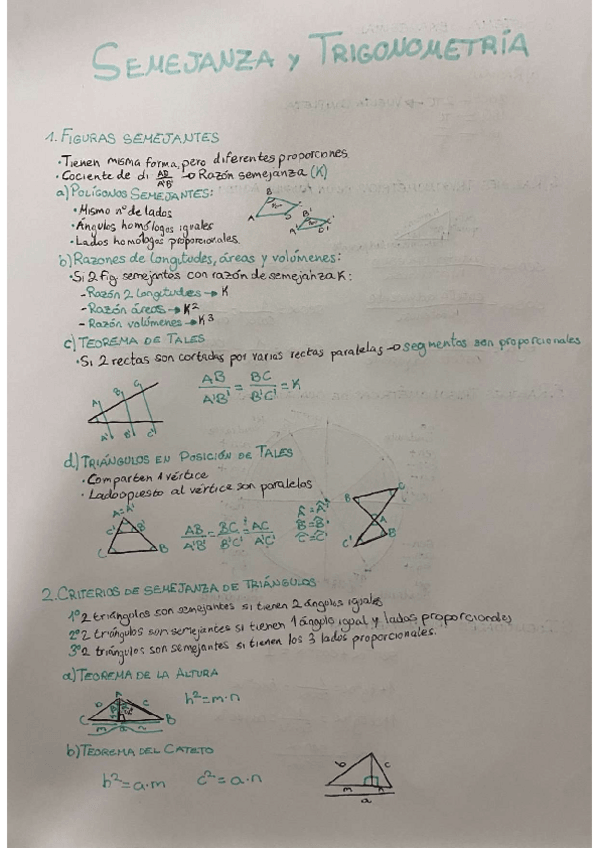 SEMEJANZA y TRIGONOMETRÍA
1. FIGURAS SEMEJANTES
· Tienen misma forma, pero diferentes proporciones.
· Cociente de di AB/A'B' → Razón semejanza (K)
a) POLÍGONOS SEMEJANTES:
· Mismo nº de lados
· Ángulos homólogos iguales
· Lados homólogos proporcionales.
B
A
D
B'
A'
D'
b) Razones de longitudes, áreas y volúmenes:
· Si 2 fig semejantes con razón de semejanza K:
- Razón 2 longitudes → K
- Razón áreas → K²
- Razón volúmenes → K³
c) TEOREMA DE TALES
· Si 2 rectas son cortadas por varias rectas paralelas → segmentos son proporcionales
A B C
A' B' C'
AB/A'B' = BC/B'C' = K
d) TRIÁNGULOS EN POSICIÓN DE TALES
· Comparten 1 vértice
· Lado opuesto al vértice son paralelos
A=A'
C' B'
C B
AB/A'B' = BC/B'C' = AC/A'C'
Â = Â'
B̂ = B̂'
Ĉ = Ĉ'
B C
A
C' B
2. CRITERIOS DE SEMEJANZA DE TRIÁNGULOS
1º 2 triángulos son semejantes si tienen 2 ángulos iguales
2º 2 triángulos son semejantes si tienen 1 ángulo igual y lados proporcionales
3º 2 triángulos son semejantes si tienen los 3 lados proporcionales.
a) TEOREMA DE LA ALTURA
A
b c
C B
m n
a
h² = m·n
b) TEOREMA DEL CATETO
b² = a·m c² = a·n
b c
m n
a